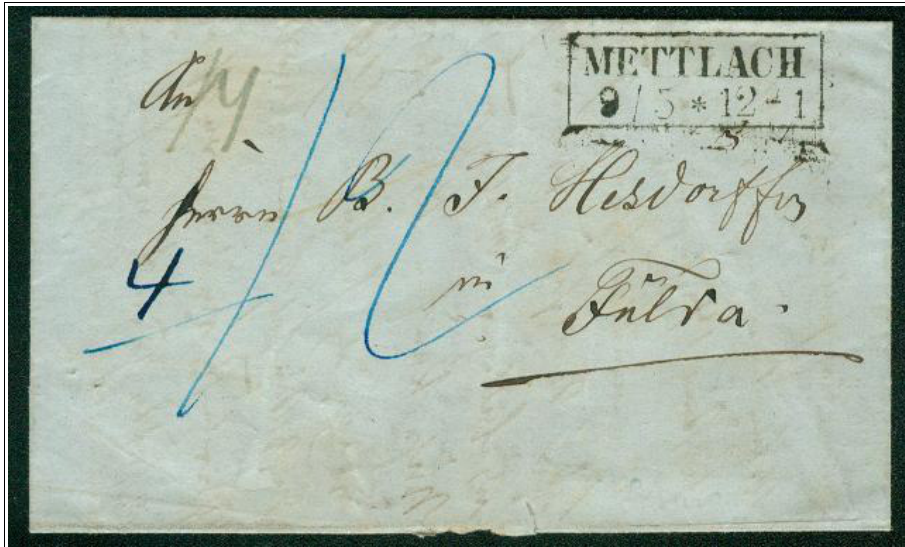 METTLACH
9/5 * 12-1
An
Herrn B. J. Hesdorffer
in
Fulda.
4